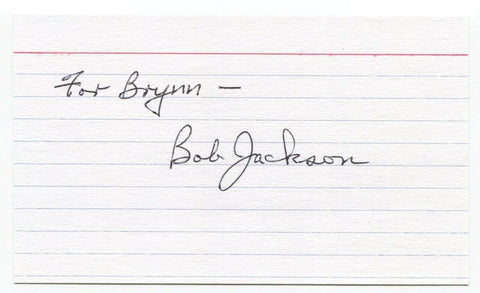 For Brynn –
Bob Jackson